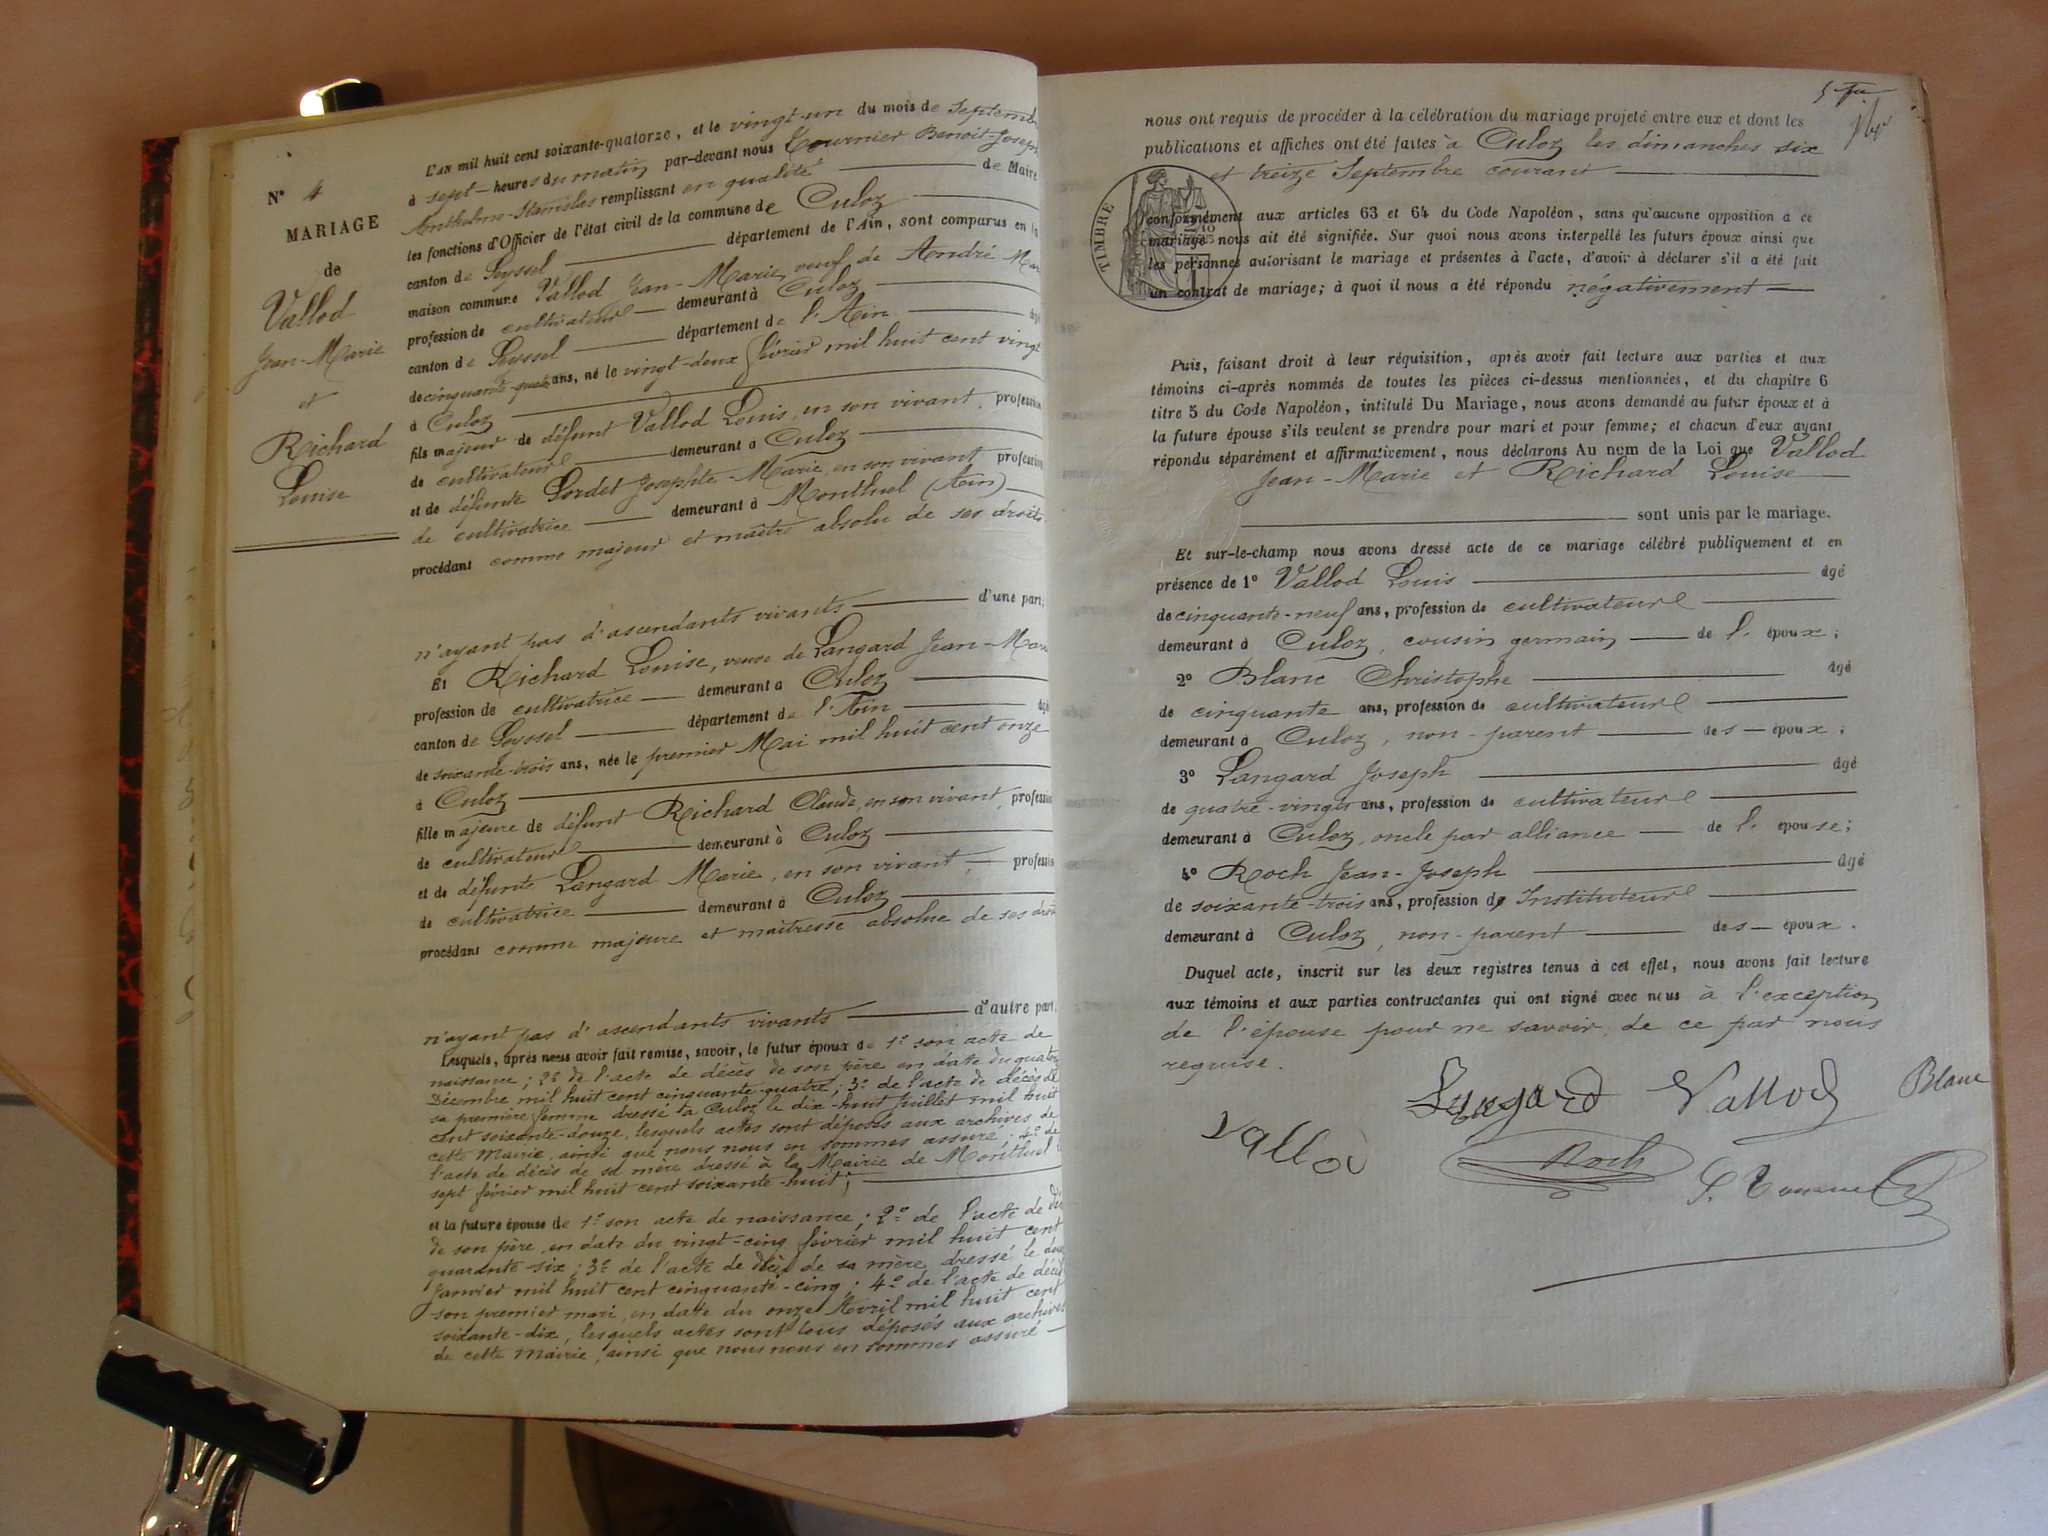 N° 4
MARIAGE
de
Vallod
Jean-Marie
et
Richard
Louise
L'an mil huit cent soixante-quatorze, et le vingt-un du mois de Septembre
à sept heures du matin par-devant nous Tournier Benoît-Joseph
Anthelme-Stanislas remplissant en qualité de Maire
les fonctions d'Officier de l'état civil de la commune de Culoz
canton de Seyssel département de l'Ain, sont comparus en la
maison commune Vallod Jean-Marie, veuf de André Mar
profession de cultivateur demeurant à Culoz
canton de Seyssel département de l'Ain âgé
de cinquante-quatre ans, né le vingt-deux février mil huit cent vingt
à Culoz
fils majeur de défunt Vallod Louis, en son vivant, profession
de cultivateur demeurant à Culoz
et de défunte Sordet Josephte-Marie, en son vivant profession
de cultivatrice demeurant à Montluel (Ain)
procédant comme majeur et maître absolu de ses droits
n'ayant pas d'ascendants vivants d'une part;
Et Richard Louise, veuve de Langard Jean-Marie
profession de cultivatrice demeurant à Culoz
canton de Seyssel département de l'Ain âgé
de soixante-trois ans, née le premier Mai mil huit cent onze
à Culoz
fille majeure de défunt Richard Claude, en son vivant, profession
de cultivateur demeurant à Culoz
et de défunte Langard Marie, en son vivant, profession
de cultivatrice demeurant à Culoz
procédant comme majeure et maîtresse absolue de ses droits
n'ayant pas d'ascendants vivants d'autre part.
Lesquels, après nous avoir fait remise, savoir, le futur époux de 1° son acte de
naissance; 2° de l'acte de décès de son père en date du quatorze
Décembre mil huit cent cinquante-quatre; 3° de l'acte de décès de
sa première femme dressé à Culoz le dix-huit Juillet mil huit
cent soixante-douze, lesquels actes sont déposés aux archives de
cette Mairie, ainsi que nous nous en sommes assuré; 4° de
l'acte de décès de sa mère dressé à la Mairie de Montluel le
sept février mil huit cent soixante-huit;
et la future épouse de 1° son acte de naissance; 2° de l'acte de décès
de son père, en date du vingt-cinq février mil huit cent
quarante-six; 3° de l'acte de décès de sa mère dressé le deux
Janvier mil huit cent cinquante-cinq; 4° de l'acte de décès
son premier mari, en date du onze Avril mil huit cent
soixante-dix, lesquels actes sont tous déposés aux archives
de cette Mairie, ainsi que nous nous en sommes assuré
nous ont requis de procéder à la célébration du mariage projeté entre eux et dont les
publications et affiches ont été faites à Culoz les dimanches six
et treize Septembre courant
TIMBRE
conformément aux articles 63 et 64 du Code Napoléon, sans qu'aucune opposition à ce
mariage nous ait été signifiée. Sur quoi nous avons interpellé les futurs époux ainsi que
les personnes autorisant le mariage et présentes à l'acte, d'avoir à déclarer s'il a été fait
un contrat de mariage; à quoi il nous a été répondu négativement
Puis, faisant droit à leur réquisition, après avoir fait lecture aux parties et aux
témoins ci-après nommés de toutes les pièces ci-dessus mentionnées, et du chapitre 6
titre 5 du Code Napoléon, intitulé Du Mariage, nous avons demandé au futur époux et à
la future épouse s'ils veulent se prendre pour mari et pour femme; et chacun d'eux ayant
répondu séparément et affirmativement, nous déclarons Au nom de la Loi que Vallod
Jean-Marie et Richard Louise
sont unis par le mariage.
Et sur-le-champ nous avons dressé acte de ce mariage célébré publiquement et en
présence de 1° Vallod Louis âgé
de cinquante-neuf ans, profession de cultivateur
demeurant à Culoz, cousin germain de l'époux;
2° Blanc Christophe âgé
de cinquante ans, profession de cultivateur
demeurant à Culoz, non-parent des époux;
3° Langard Joseph âgé
de quatre-vingts ans, profession de cultivateur
demeurant à Culoz, oncle par alliance de l'épouse;
4° Roch Jean-Joseph âgé
de soixante-trois ans, profession d'Instituteur
demeurant à Culoz, non-parent des époux.
Duquel acte, inscrit sur les deux registres tenus à cet effet, nous avons fait lecture
aux témoins et aux parties contractantes qui ont signé avec nous à l'exception
de l'épouse pour ne savoir, de ce par nous
requise.
Langard Vallod Blanc
Vallod
Roch